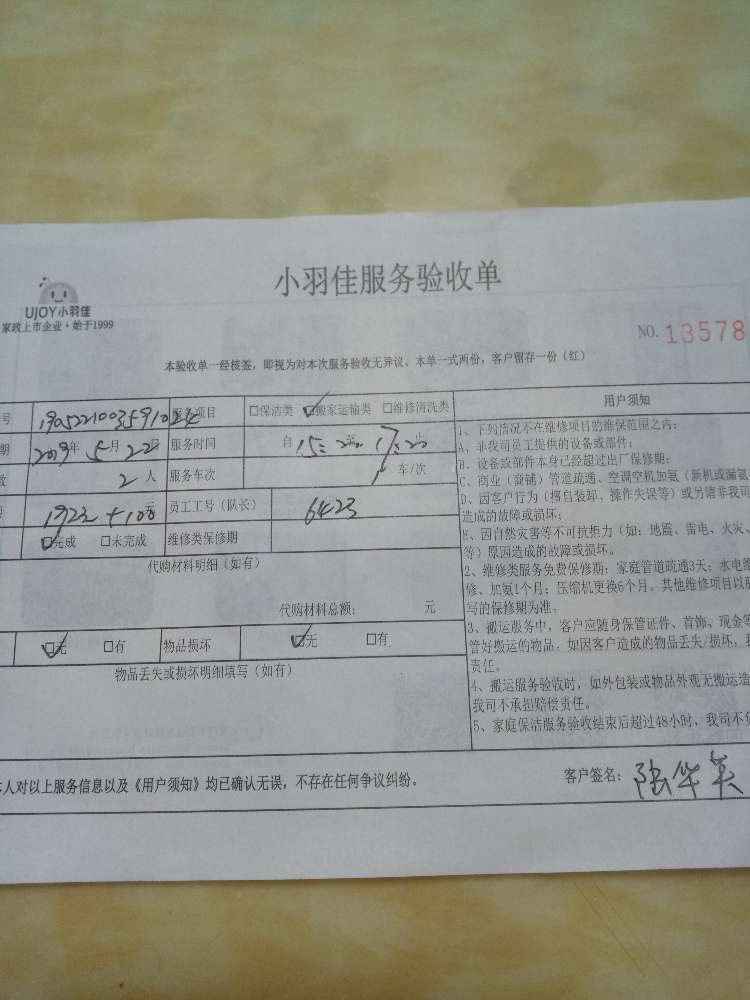 小羽佳服务验收单
UJOY小羽佳
家政上市企业·始于1999
NO. 13578
本验收单一经核签，即视为对本次服务验收无异议。本单一式两份，客户留存一份（红）
号 服务项目 □保洁类 ☑搬家运输类 □维修清洗类
期 2019年 5月 22日 服务时间 自 15: 20 至 17: 20
数 2 人 服务车次 车/次
1922 +100 元 员工工号（队长） 6423
☑完成 □未完成 维修类保修期
代购材料明细（如有）
代购材料总额： 元
☑无 □有 物品损坏 ☑无 □有
物品丢失或损坏明细填写（如有）
用户须知
1、下列情况不在维修项目的维保范围之内：
A、非我司员工提供的设备或部件；
B、设备或部件本身已经超过出厂保修期；
C、商业（商铺）管道疏通、空调空机加氨（新机或漏氨
D、因客户行为（擅自装卸、操作失误等）或另请非我司
造成的故障或损坏；
E、因自然灾害等不可抗拒力（如：地震、雷电、火灾、
等）原因造成的故障或损坏。
2、维修类服务免费保修期：家庭管道疏通3天；水电维
修、加氨1个月；压缩机更换6个月。其他维修项目以服
写的保修期为准。
3、搬运服务中，客户应随身保管证件、首饰、现金等
管好搬运的物品。如因客户造成的物品丢失/损坏，我
责任。
4、搬运服务验收时，如外包装或物品外观无搬运造
我司不承担赔偿责任。
5、家庭保洁服务验收结束后超过48小时，我司不
本人对以上服务信息以及《用户须知》均已确认无误，不存在任何争议纠纷。
客户签名： 张华英